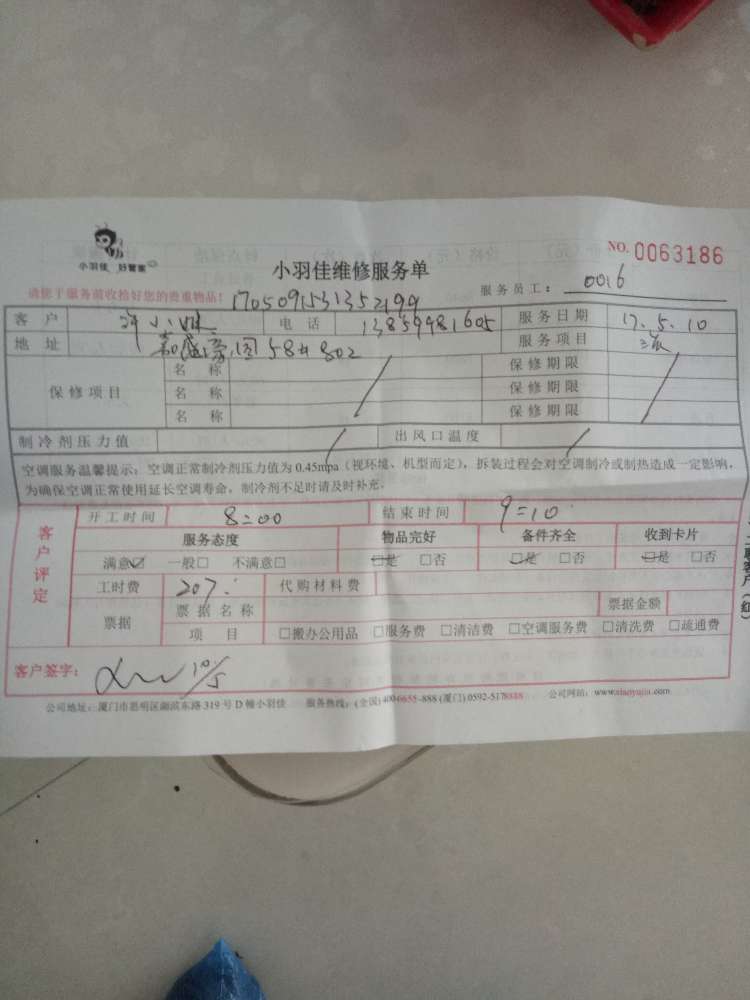 小羽佳 好管家
小羽佳维修服务单
NO. 0063186
请您于服务前收拾好您的贵重物品! 1705091531352199
服务员工: 0016
客户 许小姐 电话 13859481605 服务日期 17.5.10
地址 嘉盛豪园 58# 802 服务项目
保修项目 名称 保修期限
名称 保修期限
名称 保修期限
制冷剂压力值 出风口温度
空调服务温馨提示: 空调正常制冷剂压力值为 0.45mpa (视环境、机型而定), 拆装过程会对空调制冷或制热造成一定影响,
为确保空调正常使用延长空调寿命, 制冷剂不足时请及时补充。
客户评定
开工时间 8:00 结束时间 9:10
服务态度 物品完好 备件齐全 收到卡片
满意☑ 一般□ 不满意□ □是 □否 □是 □否 □是 □否
工时费 207. 代购材料费
票据 票据名称 票据金额
项目 □搬办公用品 □服务费 □清洁费 □空调服务费 □清洗费 □疏通费
客户签字: 10/5
公司地址: 厦门市思明区湖滨东路 319 号 D 幢小羽佳 服务热线: (全国) 400-6655-888 (厦门) 0592-5178888 公司网站: www.xiaoyujia.com